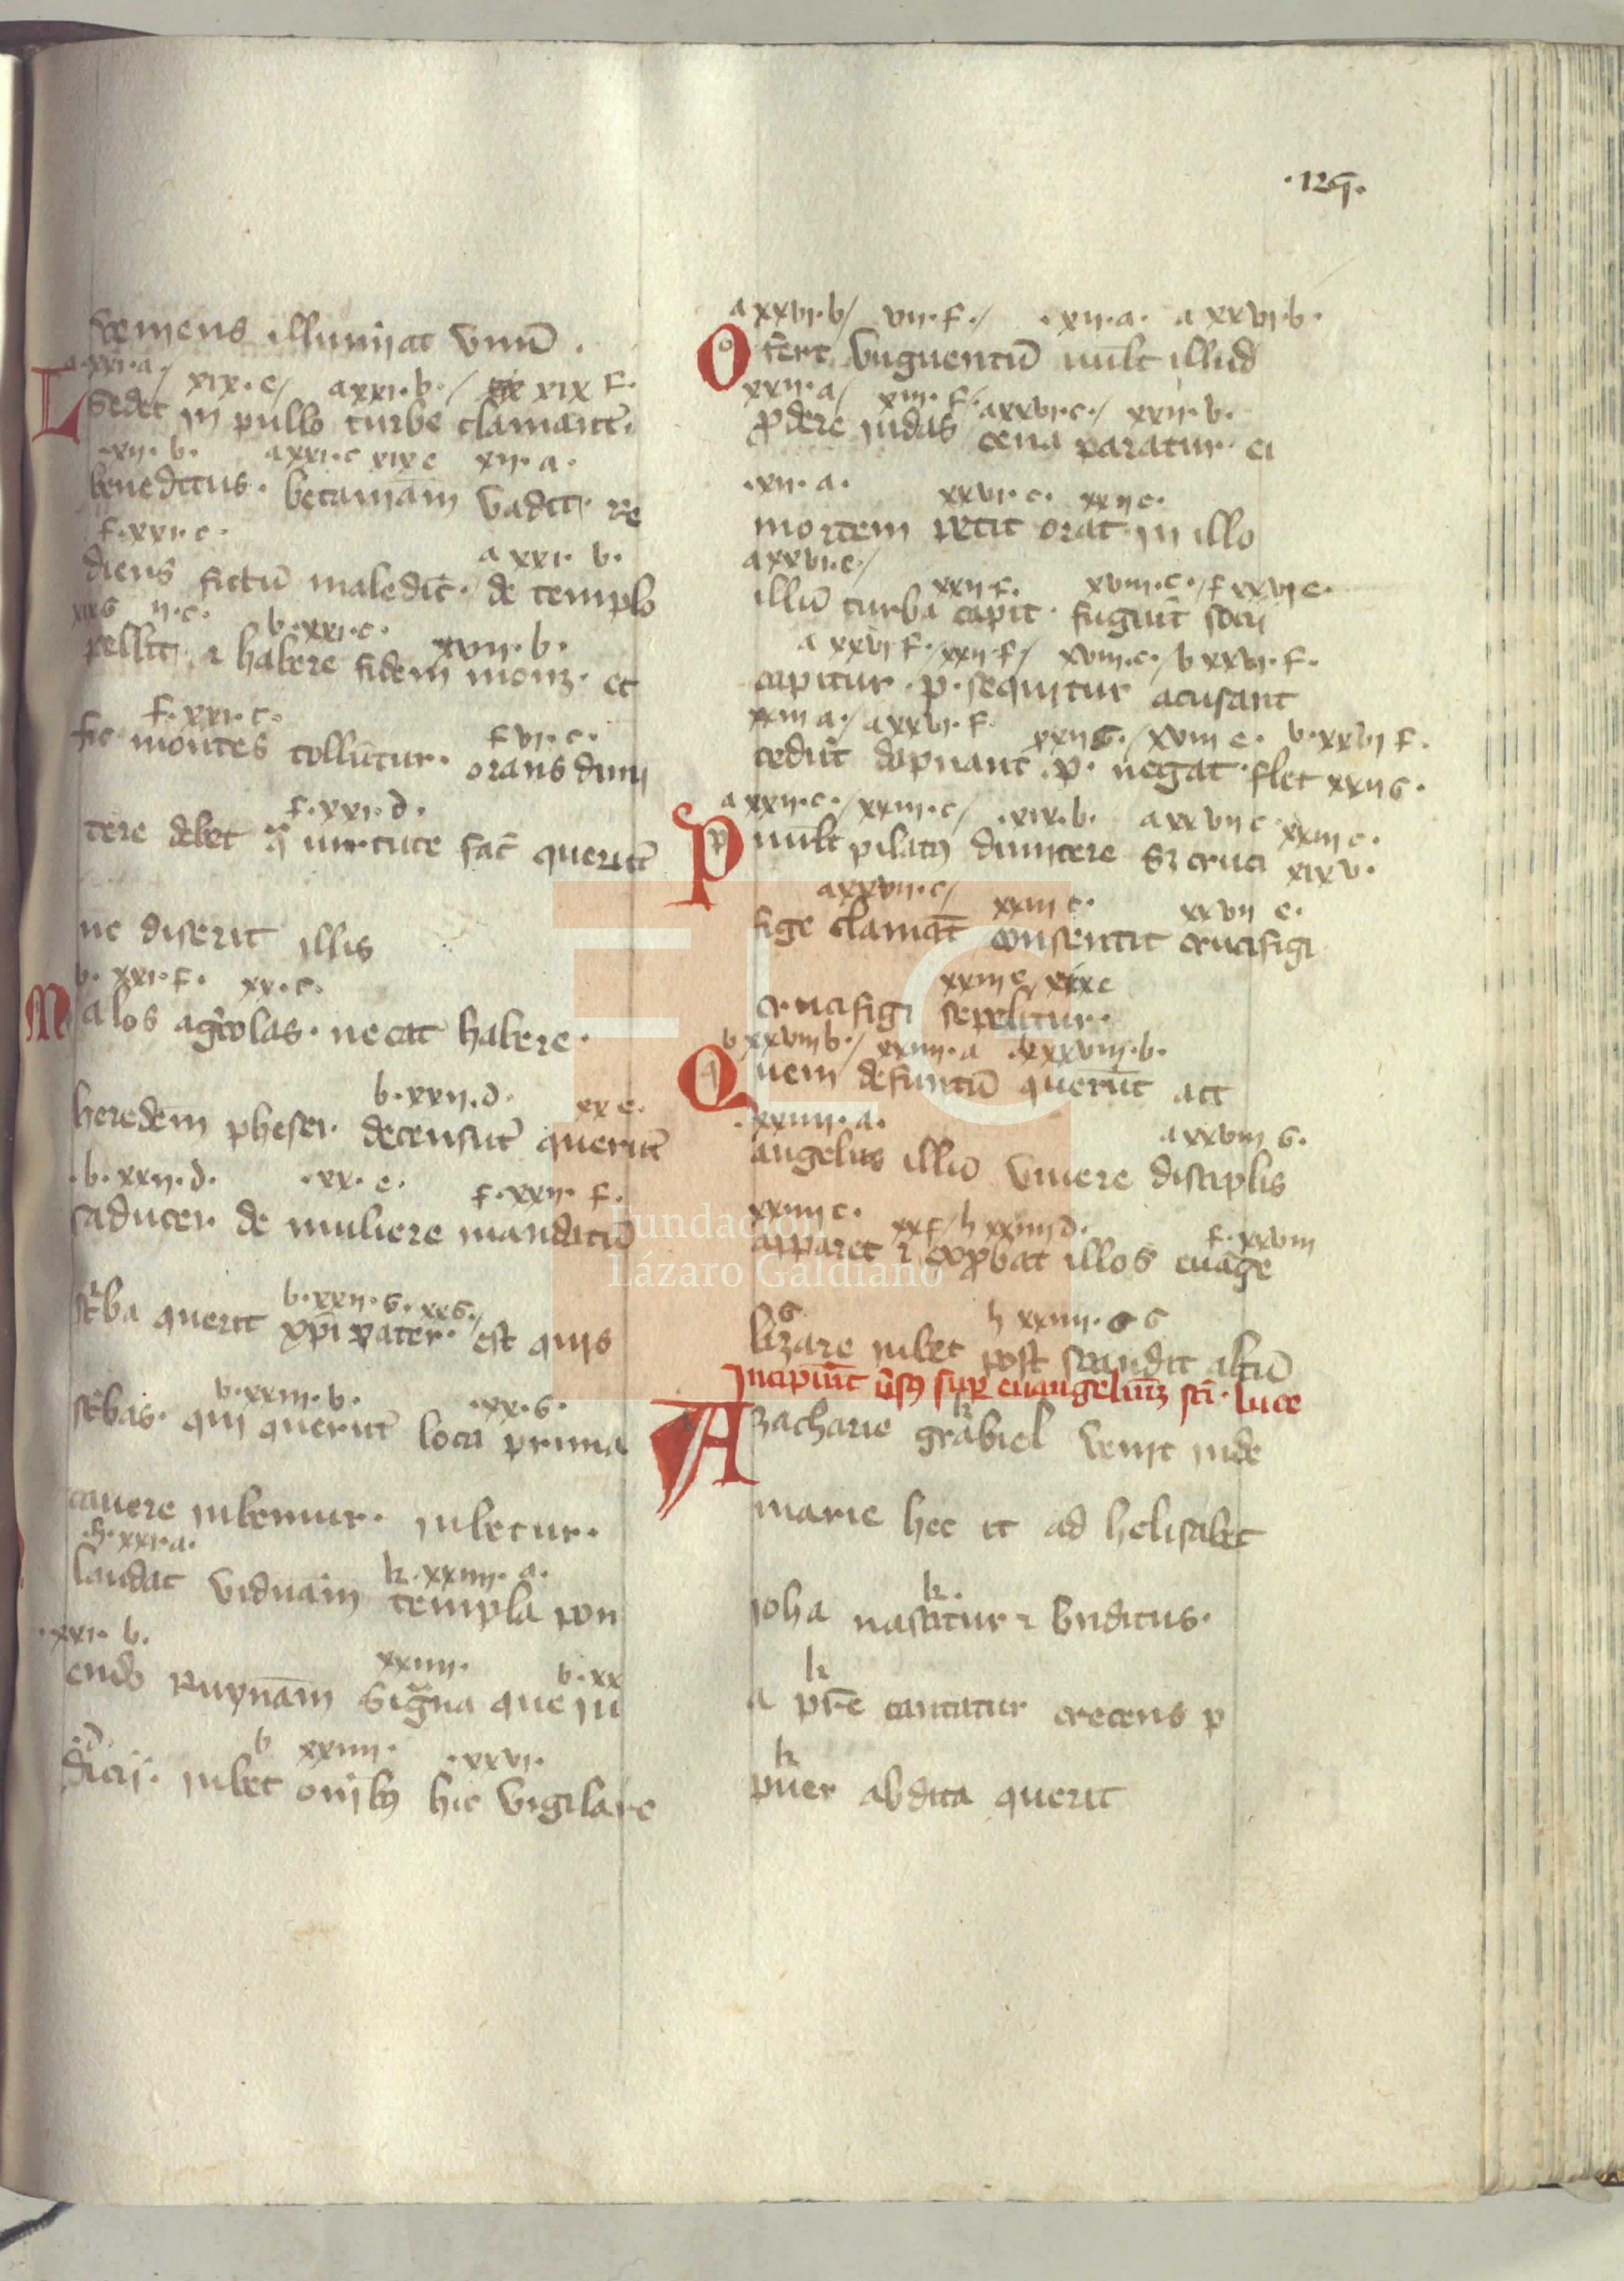 ·129·
vemens illuminat vnū .
a·xxi·a / xix·c / a xxi·b· / xix f·
L Sedet in pullo turbe clamant̄
·xii· b· a xxi·c xix c xii· a·
benedictus· betaniam vadit· re
f·xxi· c· a xxi· b·
diens fictū maledic̄· de templo
xix G ii·c· b·xxi·c· xvii·b·
pellit· ⁊ habere fidem monꝫ· et
f·xxi·c· f vi·c·
sic montes tollūtur· orans dimi
f·xxi·d·
tere debet qᵃ uirtute fac̄ querit̄
nc̄ diserit illis
b· xxi·f· xx·c·
M alos agͥcolas· necat habere·
b·xxii·d· xx e·
heredem phesei· decensut̄ querūt
·b·xxii·d· ·xx·e· f·xxii· f·
saducei· de muliere mandatū
b·xxii·G· xx G·
scͥba querit xp̄i pater· est quis
b·xxiii·b· ·xx·G·
scͥbas· qui querūt loca prima
cauere iubemur· iubetur·
h·xxi·a·
laudat viduam k·xxiiii·a· templa pon
·xxi· b· xxiiii· b·xx
endo Ruynam Sigᵃna que iu
·d· b xxiiii· ·xxvi·
dicii· iubet oīb; hic vigilare
a xxvi·b / vii·f· / ·xii·a· a xxvi·b·
O fert vnguentū uult illud
xxii·a / xiii·f / a xxvi·c· / xxii·b·
ꝓdere iudas cena paratur· ei
·xii· a· xxvi·c· xxii c·
mortem petit orat in illo
a xxvi·e· / xxii·f· xviii·c· / f xxvi e·
illū turba capit· fugiūt socii
a xxvi f· / xxii·f / xviii·c· / b xxvi·f·
capitur ·p· sequitur acusant
xxiii a· / a xxvi·f· xxii G· / xviii e· b·xxvi f·
cedūt dapnant ·p· negat· flet xxii G·
a xxii·c· / xxiii·c / ·xix·b· a xxvii c xxiii c·
P uult pilatꝰ dimitere Sꝫ cruci xix b·
a xxvii·c / xxiii c· xxvii e·
fige clamāt consentit crucifigi
xxiii e / xix c
crucifigi sepelitur·
b xxviii b· / xxiiii·a xxviii·b·
Q uem defuntū querūt att
·xxiiii·a· a xxviii G·
angelus illū viuere disciplis
xxiiii c· xx f / h xxiiii d· f·xxviii
apparet ⁊ exꝓbat illos euāge
G h xxiiii·G G
lizare iubet post scandit altū
Incipiūt v̄sꝰ suꝑ euangeliuꝫ sc̄i· luce
k
A zacharie grabiel venit inde
marie hec it ad helisabet
k·
ioha nascitur ⁊ bn̄dictus·
k
a pr̄e cantatur crecens p
k
puer abdita querit